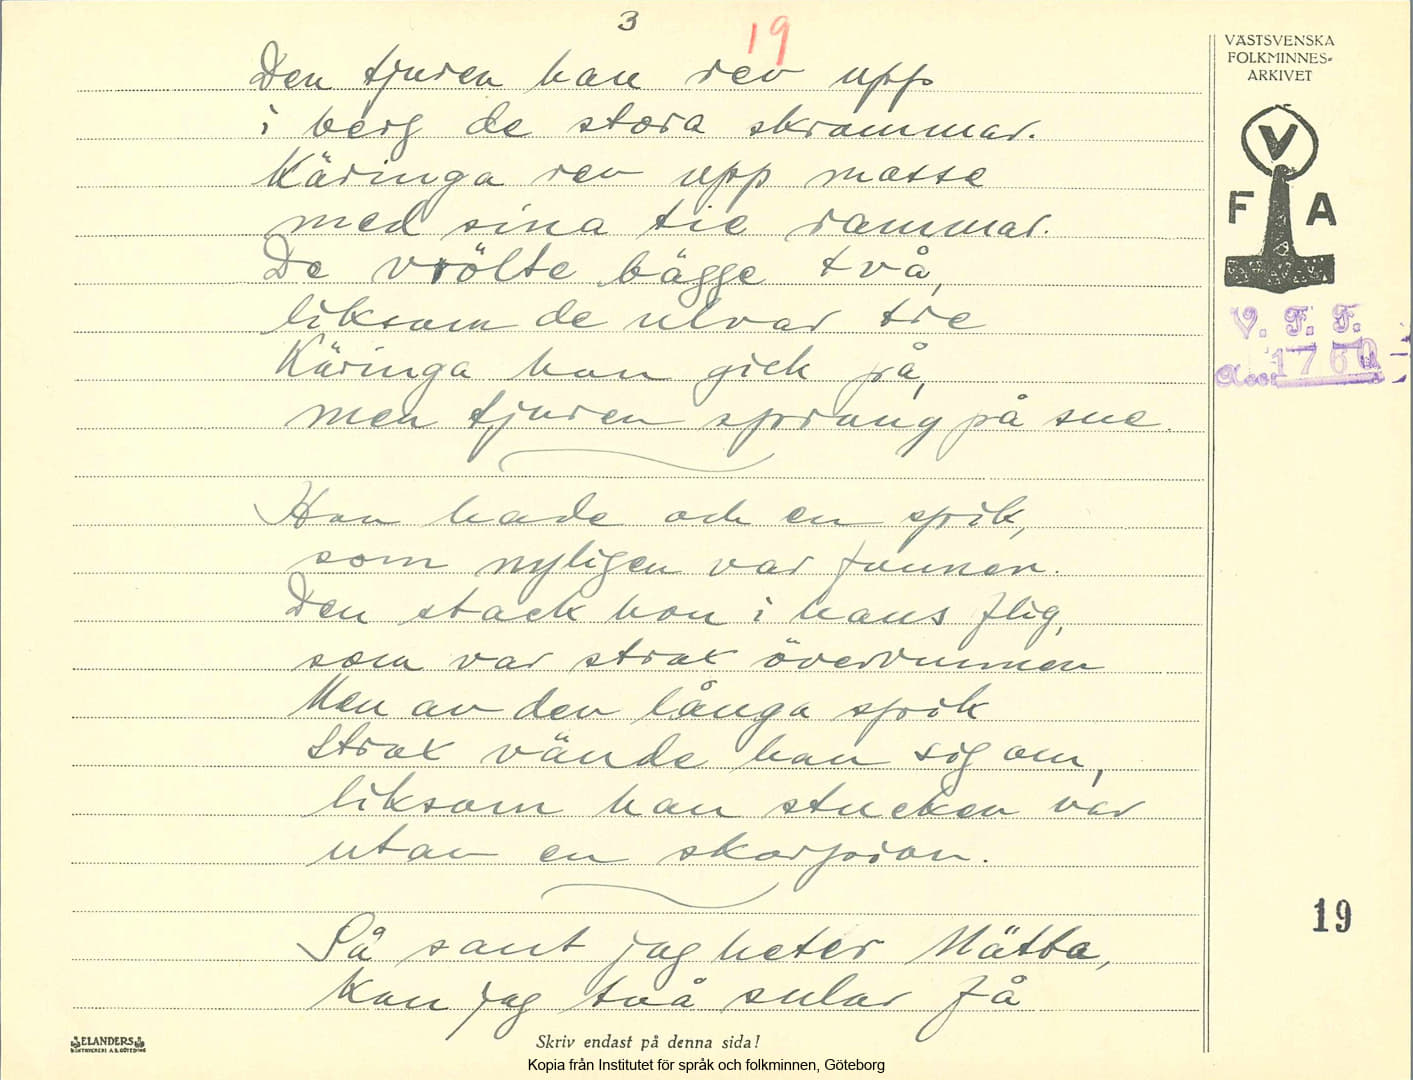 3
19
VÄSTSVENSKA
FOLKMINNES-
ARKIVET
V
F A
V. F. F.
1760
Den tjuren han rev upp
i berg de stora skrammar.
Käringa rev upp mosse
med sina tie rammar.
De vrölte bägge två,
liksom de ulvar tre
Käringa hon gick på,
men tjuren sprang på sne.
Hon hade och en spik,
som nyligen var funnen.
Den stack hon i hans flig,
som var strax övervunnen
Men av den långa spik
strax vände han sig om,
liksom han stucken var
utav en skorpion.
Så sant jag heter Mätta,
kan jag två sular få
19
ELANDERS
BOKTRYCKERI A.B. GÖTEBORG
Skriv endast på denna sida!
Kopia från Institutet för språk och folkminnen, Göteborg